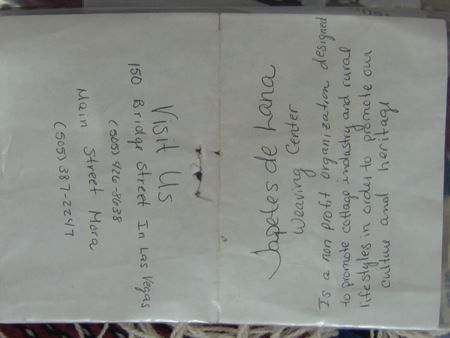 Tapetes de Lana
Weaving Center
Is a non profit organization designed
to promote cottage industry and rural
lifestyles in order to promote our
culture and heritage
Visit Us
150 Bridge Street In Las Vegas
(505) 426-8638
Main Street Mora
(505) 387-2247